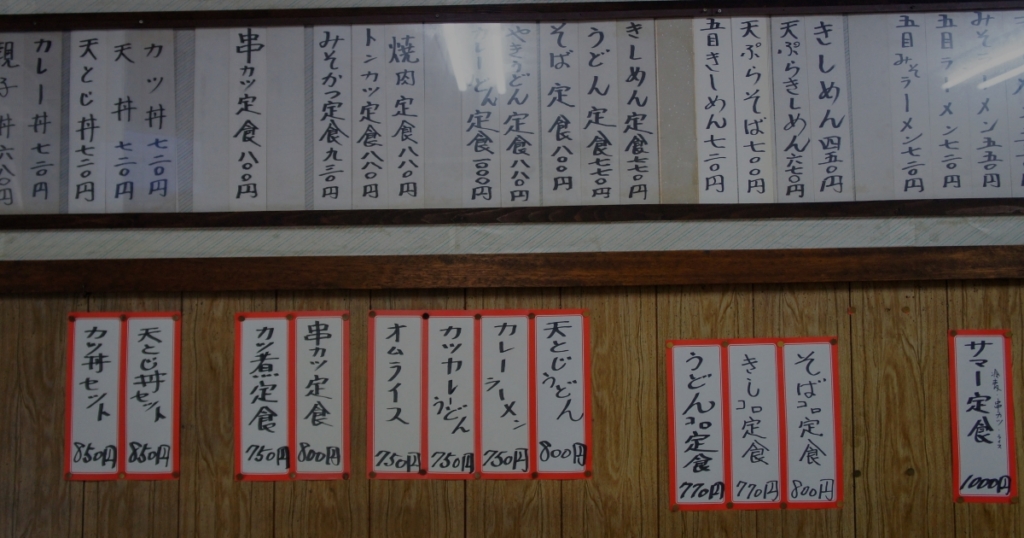 五目ラーメン七二〇円
五目みそラーメン七二〇円
きしめん四五〇円
天ぷらきしめん六七〇円
天ぷらそば七〇〇円
五目きしめん七二〇円
きしめん定食七七〇円
うどん定食七七〇円
そば定食八〇〇円
やきうどん定食八八〇円
カレーうどん定食一〇〇〇円
焼肉定食八八〇円
トンカツ定食八八〇円
みそかつ定食九三〇円
串カツ定食八〇〇円
カツ丼七二〇円
天丼七二〇円
天とじ丼七二〇円
カレー丼七二〇円
親子丼六八〇円
サマー定食
1000円
そばコロ定食
800円
きしコロ定食
770円
うどんコロ定食
770円
天とじうどん
800円
カレーラーメン
750円
カツカレーうどん
750円
オムライス
750円
串カツ定食
800円
カツ煮定食
750円
天とじ丼セット
850円
カツ丼セット
850円